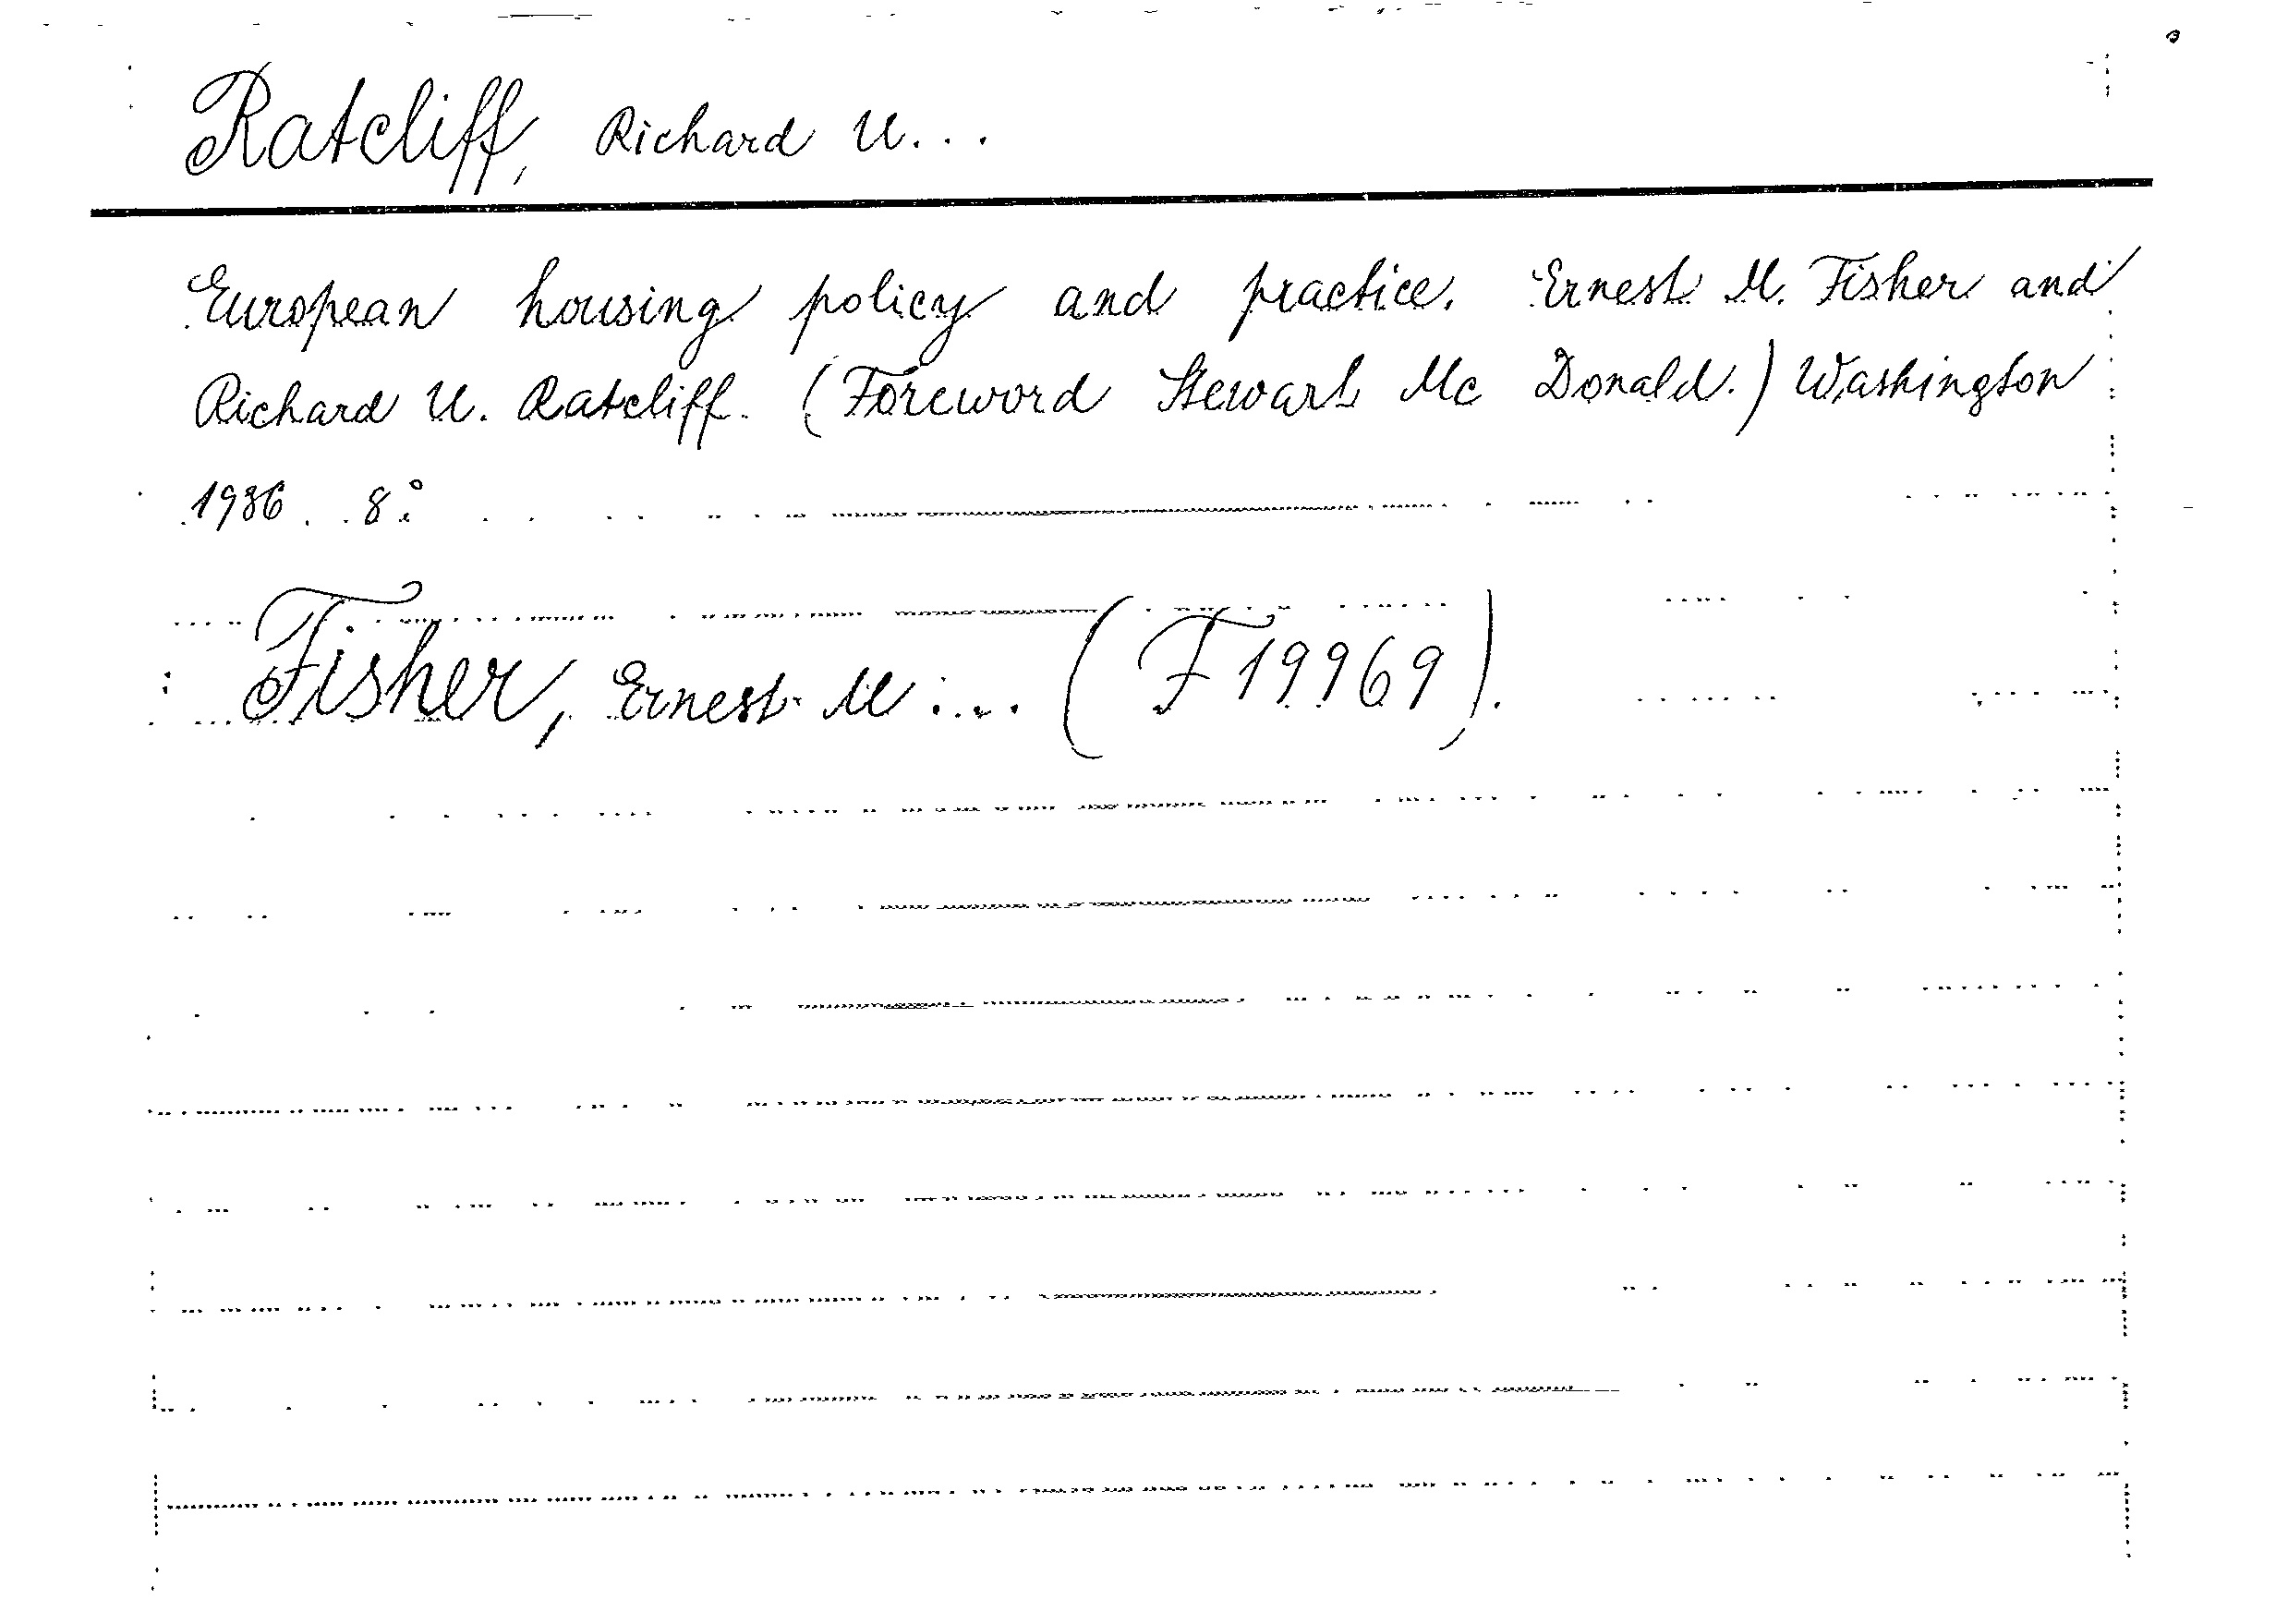 Ratcliff, Richard U...
European housing policy and practice. Ernest M. Fisher and
Richard U. Ratcliff. (Foreword Stewart Mc Donald.) Washington
1936. 8°.
Fisher, Ernest M... (F 19969).